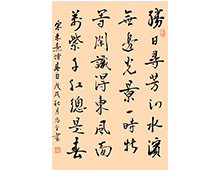 勝日尋芳泗水濱
無邊光景一時新
等閑識得東風面
萬紫千紅總是春
宋朱熹詩春日戊戌秋月書